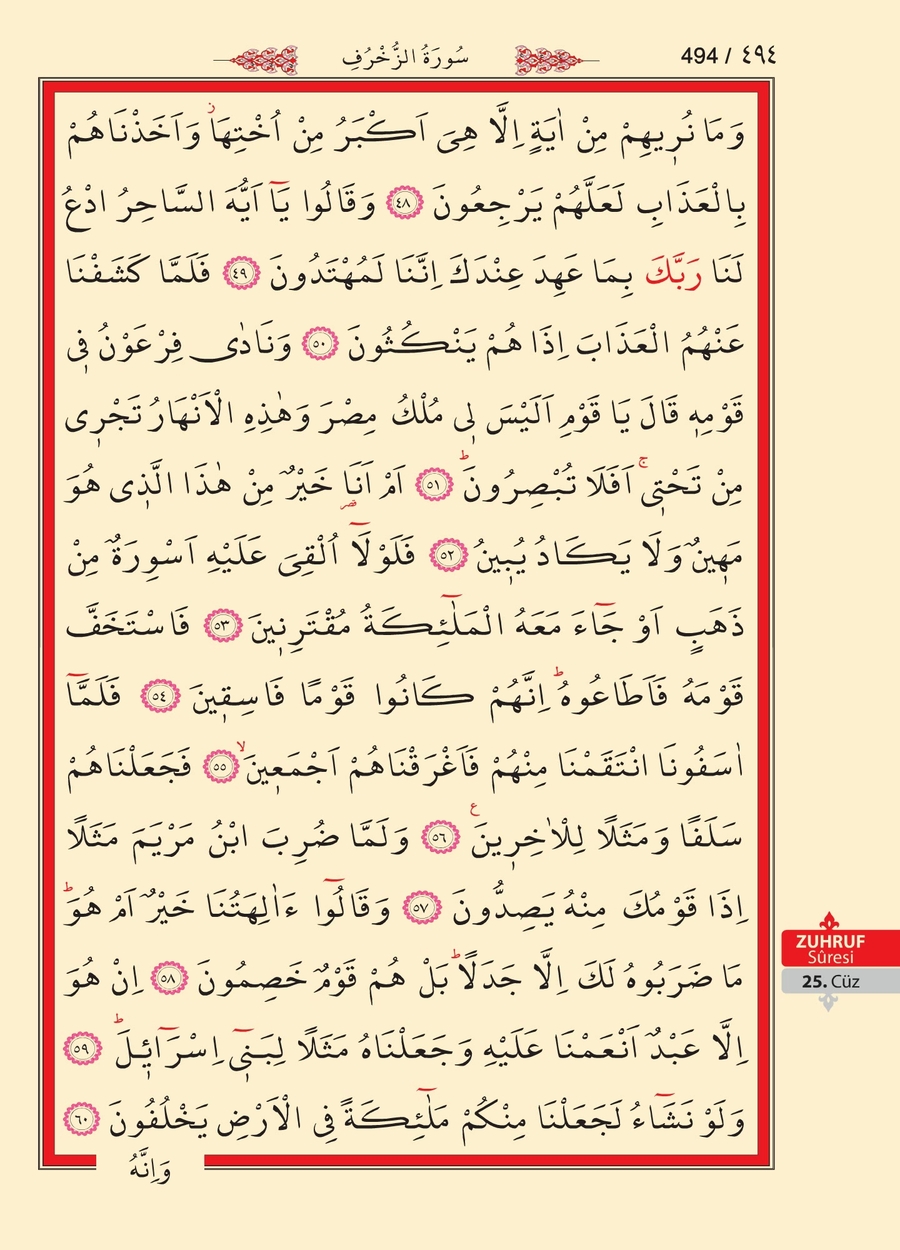 494 / ٤٩٤
سُورَةُ الزُّخْرُفِ
وَمَا نُرٖيهِمْ مِنْ اٰيَةٍ اِلَّا هِىَ اَكْبَرُ مِنْ اُخْتِهَاۘ وَاَخَذْنَاهُمْ
بِالْعَذَابِ لَعَلَّهُمْ يَرْجِعُونَ ﴿٤٨﴾ وَقَالُوا يَٓا اَيُّهَ السَّاحِرُ ادْعُ
لَنَا رَبَّكَ بِمَا عَهِدَ عِنْدَكَ اِنَّنَا لَمُهْتَدُونَ ﴿٤٩﴾ فَلَمَّا كَشَفْنَا
عَنْهُمُ الْعَذَابَ اِذَا هُمْ يَنْكُثُونَ ﴿٥٠﴾ وَنَادٰى فِرْعَوْنُ فٖى
قَوْمِهٖ قَالَ يَا قَوْمِ اَلَيْسَ لٖى مُلْكُ مِصْرَ وَهٰذِهِ الْاَنْهَارُ تَجْرٖى
مِنْ تَحْتٖىۚ اَفَلَا تُبْصِرُونَؕ ﴿٥١﴾ اَمْ اَنَا۬ خَيْرٌ مِنْ هٰذَا الَّذٖى هُوَ
مَهٖينٌ وَلَا يَكَادُ يُبٖينُ ﴿٥٢﴾ فَلَوْلَٓا اُلْقِىَ عَلَيْهِ اَسْوِرَةٌ مِنْ
ذَهَبٍ اَوْ جَٓاءَ مَعَهُ الْمَلٰٓئِكَةُ مُقْتَرِنٖينَ ﴿٥٣﴾ فَاسْتَخَفَّ
قَوْمَهُ فَاَطَاعُوهُؕ اِنَّهُمْ كَانُوا قَوْمًا فَاسِقٖينَ ﴿٥٤﴾ فَلَمَّٓا
اٰسَفُونَا انْتَقَمْنَا مِنْهُمْ فَاَغْرَقْنَاهُمْ اَجْمَعٖينَۙ ﴿٥٥﴾ فَجَعَلْنَاهُمْ
سَلَفًا وَمَثَلًا لِلْاٰخِرٖينَ ع ﴿٥٦﴾ وَلَمَّا ضُرِبَ ابْنُ مَرْيَمَ مَثَلًا
اِذَا قَوْمُكَ مِنْهُ يَصِدُّونَ ﴿٥٧﴾ وَقَالُٓوا ءَاٰلِهَتُنَا خَيْرٌ اَمْ هُوَؕ
مَا ضَرَبُوهُ لَكَ اِلَّا جَدَلًاؕ بَلْ هُمْ قَوْمٌ خَصِمُونَ ﴿٥٨﴾ اِنْ هُوَ
اِلَّا عَبْدٌ اَنْعَمْنَا عَلَيْهِ وَجَعَلْنَاهُ مَثَلًا لِبَنٖٓى اِسْرَٓائٖلَؕ ﴿٥٩﴾
وَلَوْ نَشَٓاءُ لَجَعَلْنَا مِنْكُمْ مَلٰٓئِكَةً فِى الْاَرْضِ يَخْلُفُونَ ﴿٦٠﴾
وَاِنَّهُ
ZUHRUF
Sûresi
25. Cüz